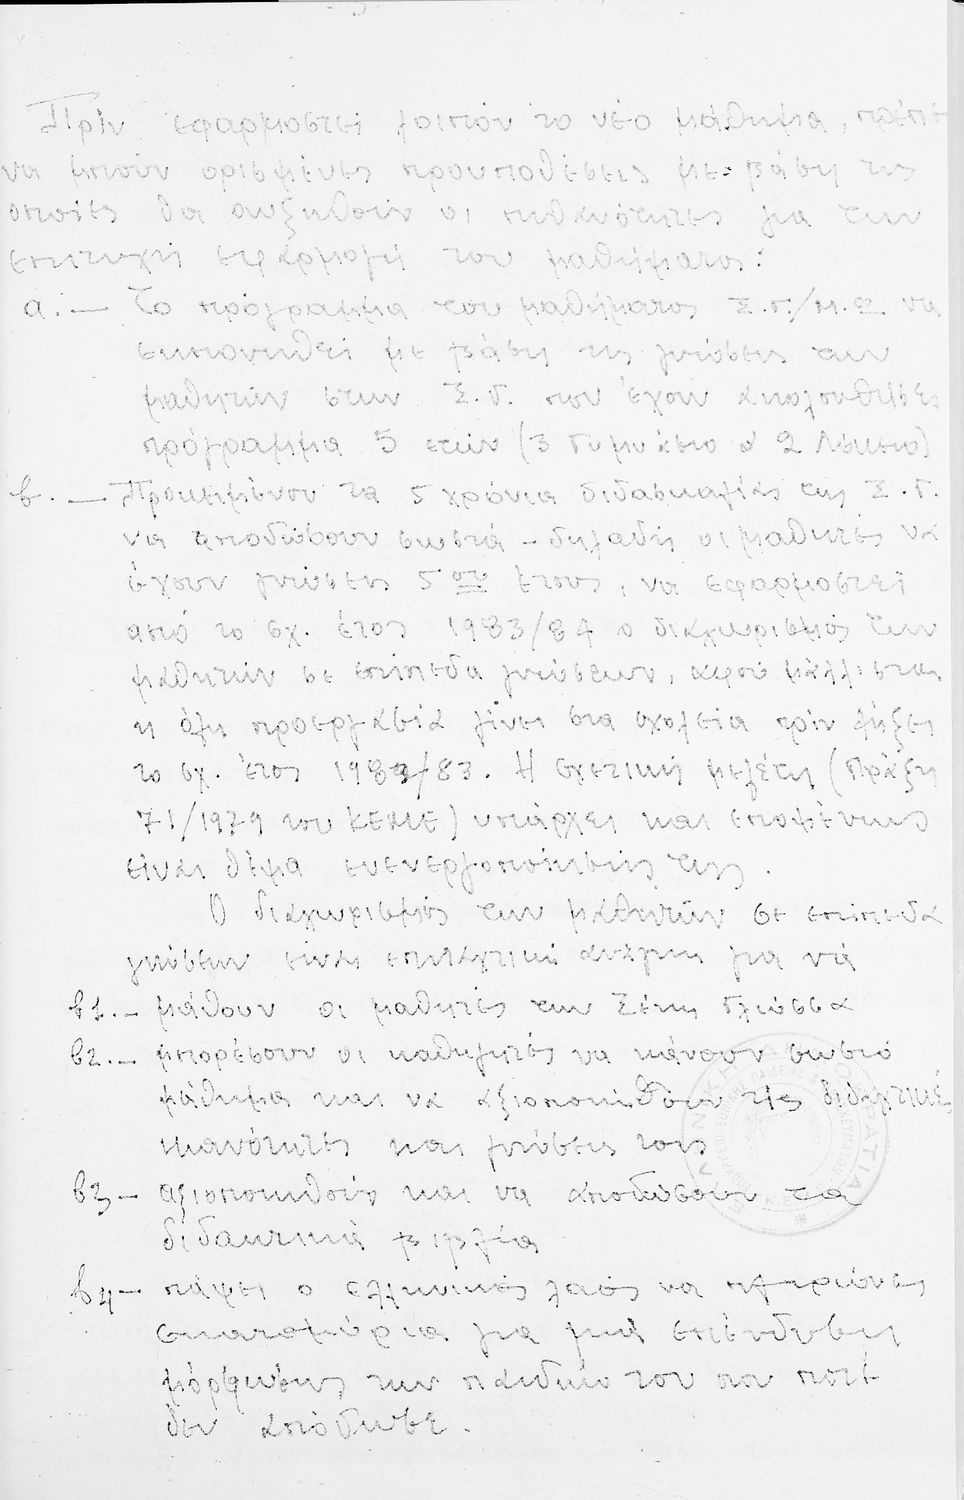 Πρίν εφαρμοστεί λοιπόν το νέο μάθημα, πρέπει
να μπούν ορισμένες προυποθέσεις με βάση τις
οποίες θα αυξηθούν οι πιθανότητες για την
επιτυχή εφαρμογή του μαθήματος:
α.— Το πρόγραμμα του μαθήματος Ξ.Γ./Μ.Ε. να
εκπονηθεί με βάση τις γνώσεις των
μαθητών στην Ξ.Γ. που έχουν ακολουθήσει
πρόγραμμα 5 ετών (3 Γυμνάσιο & 2 Λύκειο)
β.— Προκειμένου τα 5 χρόνια διδασκαλίας της Ξ.Γ.
νά αποδώσουν σωστά - δηλαδή οι μαθητές να
έχουν γνώσεις 5ου έτους, να εφαρμοστεί
από το σχ. έτος 1983/84 ο διαχωρισμός των
μαθητών σε επίπεδα γνώσεων, αφού μάλλιστα
η όλη προεργασία γίνει στα σχολεία πρίν λήξει
το σχ. έτος 1982/83. Η σχετική μελέτη (Πράξη
71/1979 του ΚΕΜΕ) υπάρχει και επομένως
είναι θέμα ενεργοποίησής της.
Ο διαχωρισμός των μαθητών σε επίπεδα
γνώσεων είναι επιτακτική ανάγκη για νά
β1.- μάθουν οι μαθητές την Ξένη Γλώσσα
β2.- μπορέσουν οι καθηγητές να κάνουν σωστό
μάθημα και να αξιοποιηθούν τις διδακτικές
ικανότητες και γνώσεις τους
β3- αξιοποιηθούν και να αποδώσουν τα
διδακτικά βιβλία
β4- πάψει ο ελληνικός λαός να πληρώνει
εκατομμύρια για μιά επένδυση
μόρφωσης των παιδιών του που ποτέ
δεν απόδωσε.